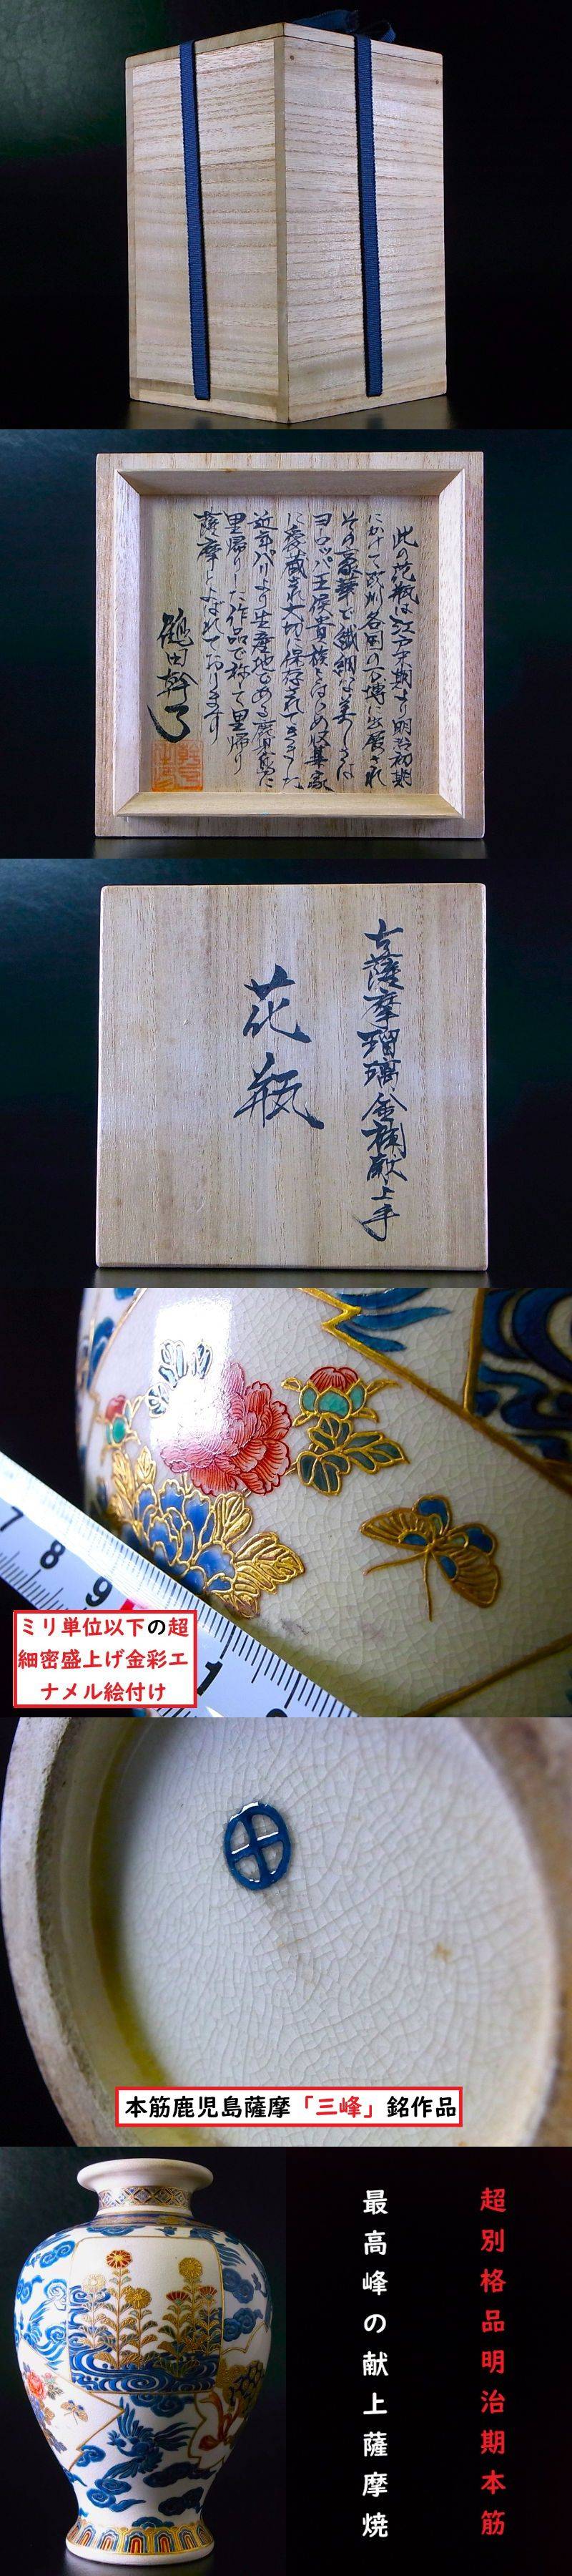 此の花瓶は江戸末期より明治初期
にかけて欧州各国の万博に出展され
その豪華で繊細な美しさは
ヨーロッパ王侯貴族をはじめ収集家
に愛蔵され大切に保存されてきました
近年パリより生産地である鹿児島に
里帰りした作品で称して里帰り
薩摩とよばれております
鶴田幹了
古薩摩瑠璃金襴献上手
花瓶
7 8 9 1
ミリ単位以下の超
細密盛上げ金彩エ
ナメル絵付け
本筋鹿児島薩摩「三峰」銘作品
超別格品明治期本筋
最高峰の献上薩摩焼